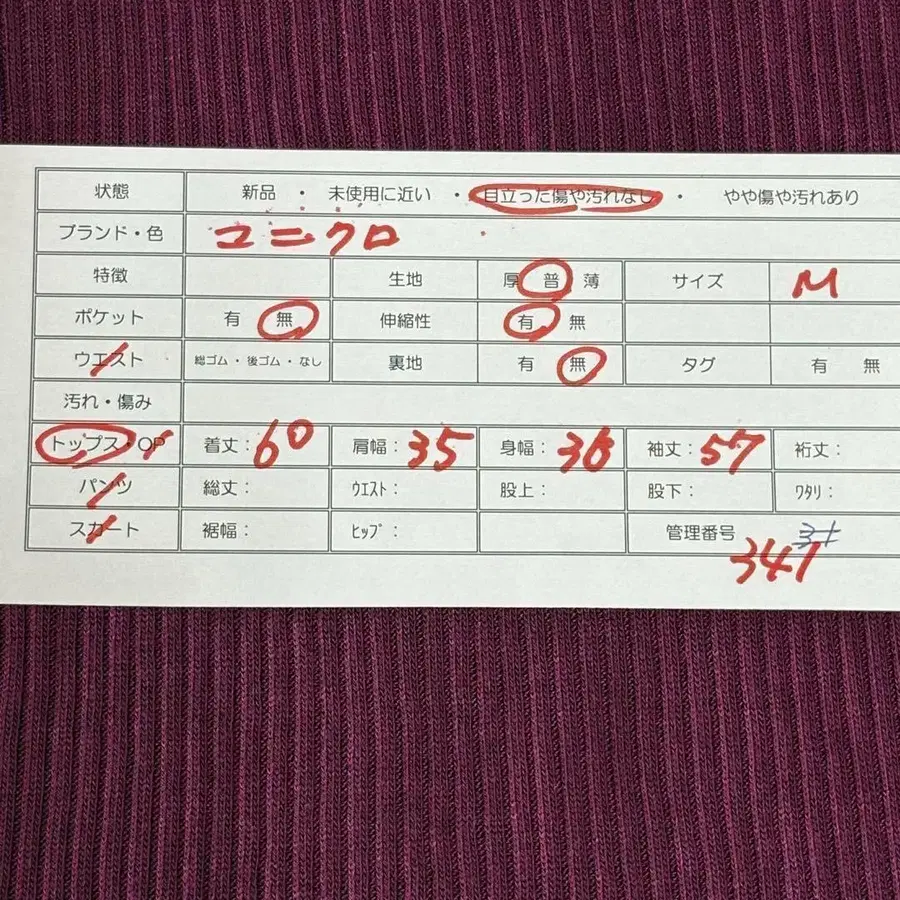 状態 新品 ・ 未使用に近い ・ 目立った傷や汚れなし ・ やや傷や汚れあり
ブランド・色 ユニクロ
特徴 生地 厚 普 薄 サイズ M
ポケット 有 無 伸縮性 有 無
ウエスト 総ゴム・後ゴム・なし 裏地 有 無 タグ 有 無
汚れ・傷み
トップス・OP 着丈：60 肩幅：35 身幅：36 袖丈：57 裄丈：
パンツ 総丈： ウエスト： 股上： 股下： ワタリ：
スカート 裾幅： ヒップ： 管理番号
341